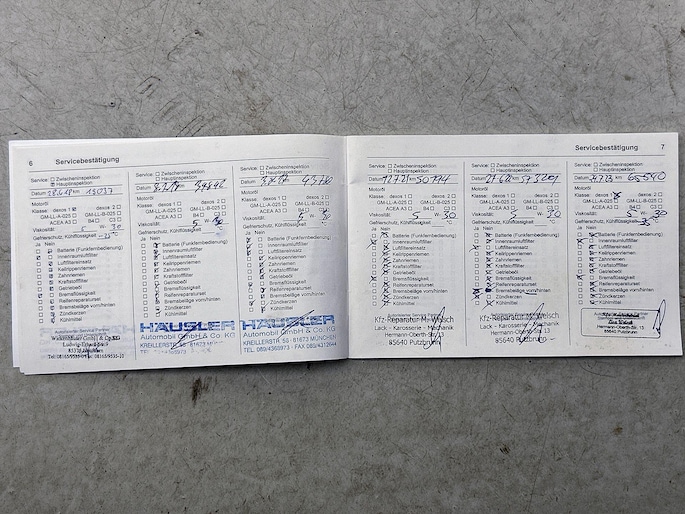 6 Servicebestätigung
Service: Zwischeninspektion
Hauptinspektion
Datum km
Motoröl
Klasse: dexos 1 dexos 2
GM-LL-A-025 GM-LL-B-025
ACEA A3 B4 C3
Viskosität: 5 W- 30
Gefrierschutz, Kühlflüssigkeit
Ja Nein
Batterie (Funkfernbedienung)
Innenraumluftfilter
Luftfiltereinsatz
Keilrippenriemen
Zahnriemen
Kraftstofffilter
Getriebeöl
Bremsflüssigkeit
Reifenreparaturset
Bremsbeläge vorn/hinten
Zündkerzen
Kühlmittel
Autorisierter Service Partner
Service: Zwischeninspektion
Hauptinspektion
Datum km
Motoröl
Klasse: dexos 1 dexos 2
GM-LL-A-025 GM-LL-B-025
ACEA A3 B4 C3
Viskosität: 5 W- 30
Gefrierschutz, Kühlflüssigkeit
Ja Nein
Batterie (Funkfernbedienung)
Innenraumluftfilter
Luftfiltereinsatz
Keilrippenriemen
Zahnriemen
Kraftstofffilter
Getriebeöl
Bremsflüssigkeit
Reifenreparaturset
Bremsbeläge vorn/hinten
Zündkerzen
Kühlmittel
HÄUSLER
Automobil GmbH & Co. KG
KREILLERSTR.
Service: Zwischeninspektion
Hauptinspektion
Datum km
Motoröl
Klasse: dexos 1 dexos 2
GM-LL-A-025 GM-LL-B-025
ACEA A3 B4 C3
Viskosität: 5 W- 30
Gefrierschutz, Kühlflüssigkeit
Ja Nein
Batterie (Funkfernbedienung)
Innenraumluftfilter
Luftfiltereinsatz
Keilrippenriemen
Zahnriemen
Kraftstofffilter
Getriebeöl
Bremsflüssigkeit
Reifenreparaturset
Bremsbeläge vorn/hinten
Zündkerzen
Kühlmittel
HÄUSLER
Automobil GmbH & Co. KG
KREILLERSTR. 55 · 81673 MÜNCHEN
Servicebestätigung 7
Service: Zwischeninspektion
Hauptinspektion
Datum km
Motoröl
Klasse: dexos 1 dexos 2
GM-LL-A-025 GM-LL-B-025
ACEA A3 B4 C3
Viskosität: 5 W- 30
Gefrierschutz, Kühlflüssigkeit
Ja Nein
Batterie (Funkfernbedienung)
Innenraumluftfilter
Luftfiltereinsatz
Keilrippenriemen
Zahnriemen
Kraftstofffilter
Getriebeöl
Bremsflüssigkeit
Reifenreparaturset
Bremsbeläge vorn/hinten
Zündkerzen
Kühlmittel
Kfz-Reparatur M. Welsch
Lack - Karosserie - Mechanik
Hermann-Oberth-Str. 13
85640 Putzbrunn
Service: Zwischeninspektion
Hauptinspektion
Datum km
Motoröl
Klasse: dexos 1 dexos 2
GM-LL-A-025 GM-LL-B-025
ACEA A3 B4 C3
Viskosität: 5 W- 30
Gefrierschutz, Kühlflüssigkeit
Ja Nein
Batterie (Funkfernbedienung)
Innenraumluftfilter
Luftfiltereinsatz
Keilrippenriemen
Zahnriemen
Kraftstofffilter
Getriebeöl
Bremsflüssigkeit
Reifenreparaturset
Bremsbeläge vorn/hinten
Zündkerzen
Kühlmittel
Kfz-Reparatur M. Welsch
Lack - Karosserie - Mechanik
Hermann-Oberth-Str. 13
85640 Putzbrunn
Service: Zwischeninspektion
Hauptinspektion
Datum km 65540
Motoröl
Klasse: dexos 1 dexos 2
GM-LL-A-025 GM-LL-B-025
ACEA A3 B4 C3
Viskosität: 5 W- 30
Gefrierschutz, Kühlflüssigkeit
Ja Nein
Batterie (Funkfernbedienung)
Innenraumluftfilter
Luftfiltereinsatz
Keilrippenriemen
Zahnriemen
Kraftstofffilter
Getriebeöl
Bremsflüssigkeit
Reifenreparaturset
Bremsbeläge vorn/hinten
Zündkerzen
Kühlmittel
Hermann-Oberth-Str. 13
85640 Putzbrunn